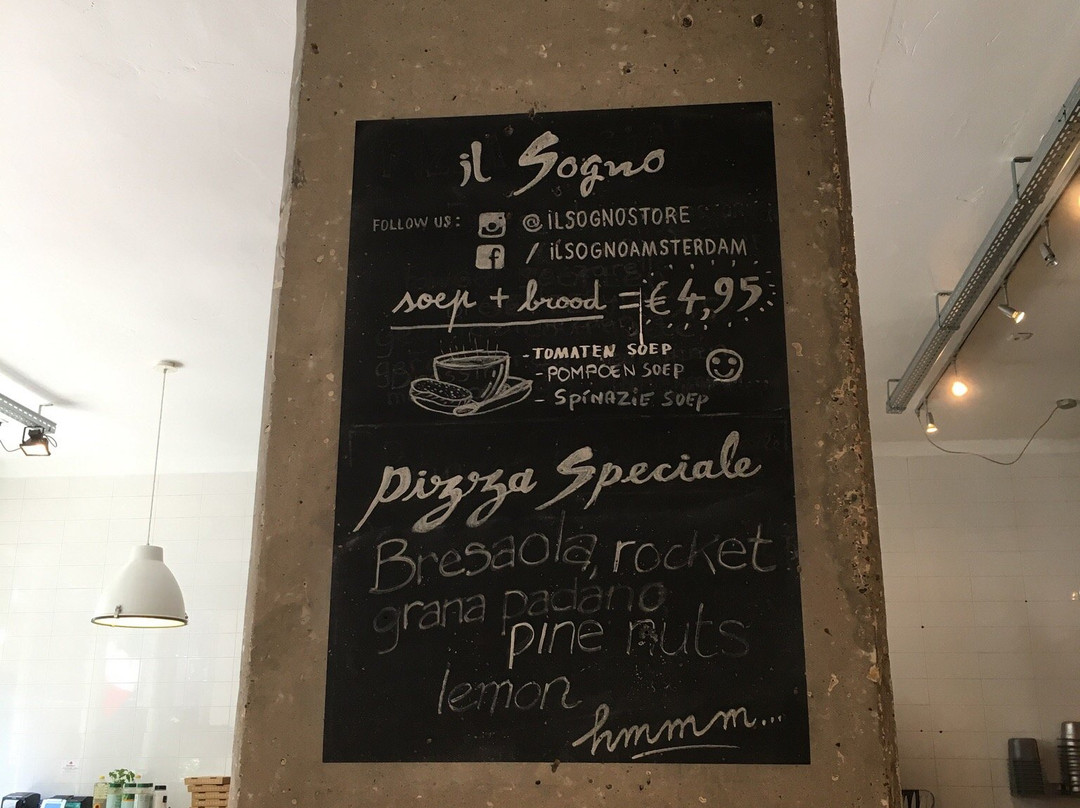 il Sogno
FOLLOW US: @iLSOGNOSTORE
/ iLSOGNOAMSTERDAM
soep + brood = € 4,95
- TOMATEN SOEP
- POMPOEN SOEP
- SPiNAZIE SOEP
Pizza Speciale
Bresaola, rocket
grana padano
pine nuts
lemon
hmmm...